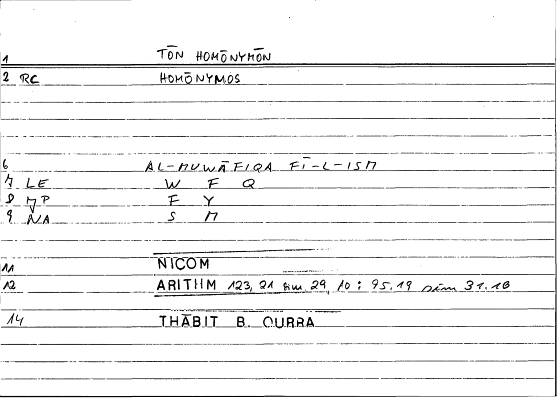 1 TŌN HOMŌNYMŌN
2 RC HOMŌNYMOS
6 AL-MUWĀFIQA FĪ-L-ISM
7 LE W F Q
8 MP F Y
9 NA S M
11 NICOM
12 ARITHM 123, 21 sim. 29, 10 : 95.19 sim 31.18
14 THĀBIT B. QURRA